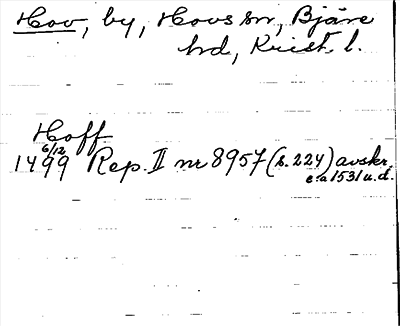 Hov, by, Hovs sn, Bjäre
hd, Krist. l.
Hoff
6/12
1499 Rep. II nr 8957 (s. 224) avskr.
c:a 1531 u.d.